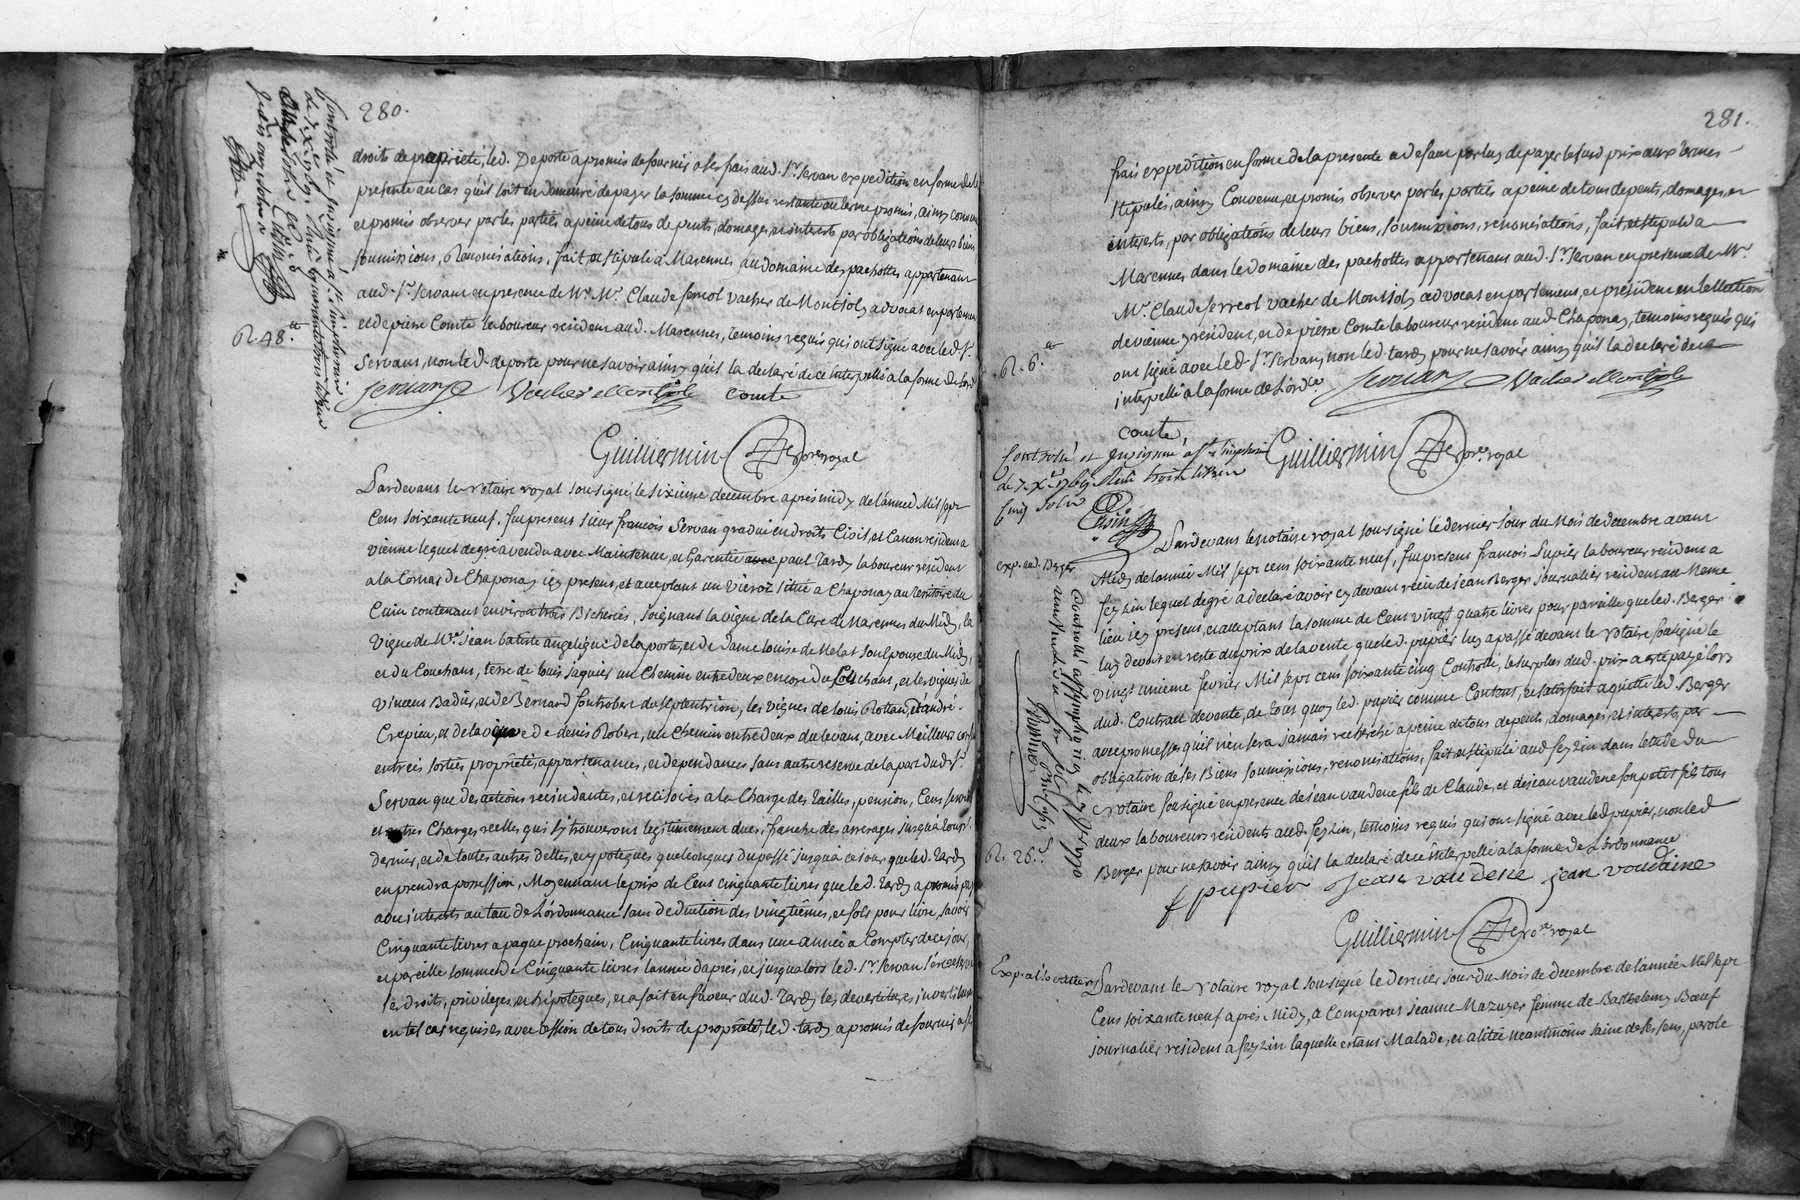 280.
droits de propriété, led. Deporte a promis de fournir a ses frais aud. Sr. Servan expedition en forme de la
presente au cas qu'il soit en demeure de payer la somme cy dessus restante au terme promis, ainsy convenu
et promis observer par les parties a peine de tous depents, domages, et interets par obligations de leurs biens
soumissions, Renonciations, fait et stipulé a Marennes au domaine des pachottes appartenant
aud. Sr. Servan en presence de Me. Mr. Claude ferreol vacher de Montjoly advocat en parlement
et de pierre Comte laboureur resident aud. Marennes, temoins requis qui ont signé avec led Sr.
Servan, non led. deporte pour ne savoir ainsy qu'il la declaré de ce interpellé a la forme de L'ord
R. 48.
Servan Vacher Montjoly comte
Guilliermin Nore royal
Pardevant le Notaire royal soussigné, le sixieme decembre après midy de l'année Mil sept
Cens soixante neuf, fut present sieur françois Servan gradué en droits Civil, et Canon resident a
vienne lequel de gré a vendu avec Maintenue, et Garentie a paul Tardy laboureur resident
a la Cornas de Chaponay icy present, et acceptant un situé a Chaponay au territoire du
contenant environ trois Bicherées, joignant la vigne de la Cure de Marennes du Midy, la
vigne de Mre jean batiste angelique de la porte, et de Dame louise de Melat son Epouse du Midy,
et du Couchant, terre de louis jaquier un Chemin entre deux encore du Couchant, et les vignes de
vincent Badin, et de Bernard fontrobert du septentrion, les vignes de louis Rolland, et andré
Crepieu, et de la vigne de denis Robert, un Chemin entre deux du levant, avec Meilleurs confins
entrées sorties proprietés, appartenances, et dependances sans autre reserve de la part dud Sr.
Servan que des actions rescindantes, et rescisoires a la Charge des Tailles, pension, Cens servis
et autres Charges reelles qui s'y trouveront legitimement dues, franche des arrerages jusqu'a
dernier, et de toutes autres dettes, et ypoteques quelconques du passé jusqu'a ce jour que led. Tardy
en prendra possession, Moyennant le prix de Cent cinquante livres que led. Tardy a promis payer
avec interets au taux de L'ordonnance sans deduction des vingtiêmes, et sols pour livre, savoir
Cinquante livres a paque prochain, Cinquante livres dans une année a Compter de ce jour,
et pareille somme de Cinquante livres l'année d'aprés, et jusqu'alors led. Sr. Servan s'est reservé
ses droits, privileges, et hipoteques, et a fait en faveur dud. Tardy les devestitures, investitures
en tel cas requises avec cession de tous droits de proprieté, led. tardy a promis de fournir a ses
281.
frais expedition en forme de la presente a defaut par luy de payer lesusd prix aux termes
stipulés, ainsy Convenu, et promis observer par les parties a peine de tous depents, domages, et
interets, par obligations de leurs biens, soumissions, renonciations, fait, et stipulé a
Marennes dans le domaine des pachottes appartenant aud. Sr. Servan en presence de Mr.
Mr. Claude ferreol vacher de Montjoly advocat en parlement, et president en l'election
de vienne y resident, et de pierre Comte laboureur resident aud. Chaponay, temoins requis qui
ont signé avec led. Sr. Servan, non led. tardy pour ne savoir ainsy qu'il la declaré de ce
interpellé a la forme de L'ordce.
R. 6.
Servan Vacher Montjoly
comte,
Guilliermin Nore. royal
Controlé et insinué a St. simphorien
de 7. Xbre 1769 Reçu trois livres
cinq sols
exp. aud. Berger
Pardevant le notaire royal soussigné le dernier jour du Mois de decembre avant
Midy de l'année Mil sept cens soixante neuf, fut present françois Pupier laboureur resident a
feyzin lequel de gré a declaré avoir cy devant reçu de jean Berger journalier resident au Meme
lieu icy present, et acceptant la somme de Cent vingt quatre livres pour pareille que led. Berger
luy devoit en reste du prix de la vente que led. pupier luy a passé devant le Notaire soussigné le
vingt unieme fevrier Mil sept cens soixante cinq Controllé, le surplus dud. prix a eté payé lors
dud. Contract de vente, de tout quoy led. pupier comme Content, et satisfait a quitté led. Berger
avec promesse qu'il n'en sera jamais recherché a peine de tous depents, domages, et interets, par
obligation de ses Biens soumissions, renonciations, fait et stipulé aud. feyzin dans l'etude du
Notaire soussigné en presence de jean vaudene fils de Claude, et de jean vaudene son petit fils tous
deux laboureurs residents aud. feyzin, temoins requis qui ont signé avec led pupier, non led
Berger pour ne savoir ainsy qu'il la declaré de ce interpellé a la forme de L'ordonnance
R. 26.
f pupier Jean vaudene jean voudaine
Guilliermin Nore. royal
Pardevant le Notaire royal soussigné le dernier jour du Mois de decembre de l'année Mil sept
Cens soixante neuf après Midy, a Comparu jeanne Mazuyer femme de Barthelemy Bœuf
journalier resident a feyzin laquelle etant Malade, et alitée neantmoins saine de ses sens, parole